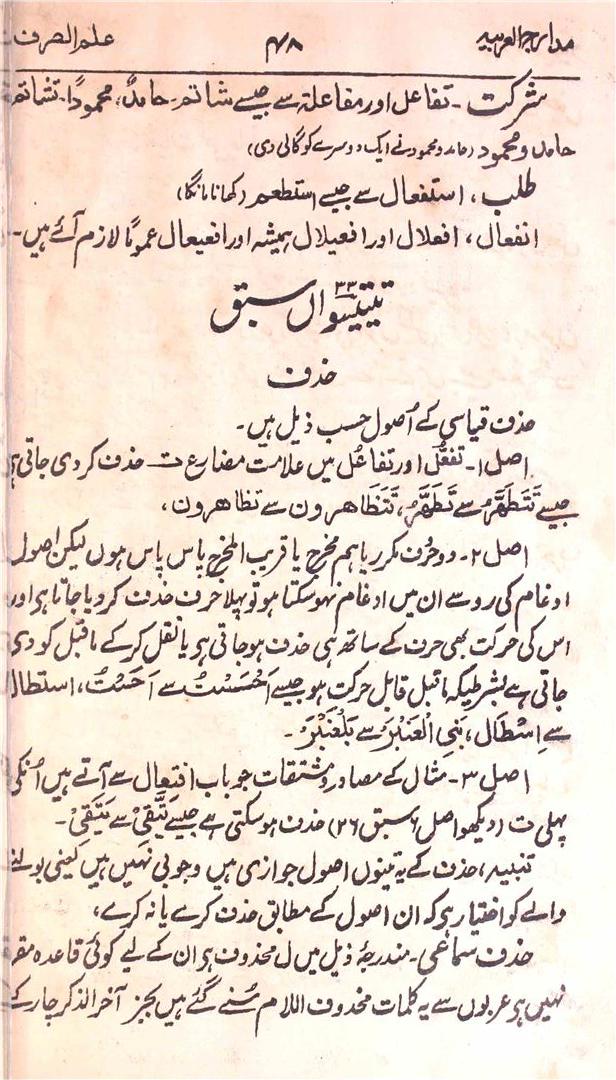 مدارج العربیہ ۴۸ علم الصرف
شرکت۔ تفاعل اور مفاعلۃ سے جیسے شاتم۔ حامدٌ، محمودًا۔ تشاتم
حامد و محمود (حامد و محمود نے ایک دوسرے کو گالی دی)
طلب، استفعال سے جیسے استطعم (کھانا مانگا)
انفعال، افعلال اور افعیلال ہمیشہ اور افعیعال عمومًا لازم آئے ہیں۔
تیتیسواں ۳۳ سبق
حذف
حذف قیاسی کے اُصول حسب ذیل ہیں۔
اصل ۱۔ تفعّل اور تفاعُل میں علامت مضارع ت حذف کر دی جاتی ہے
جیسے تَتَطَهَّرُ سے تَطَهَّرُ، تَتَظَاهرون سے تظاهرون،
اصل ۲۔ دو حرف مکرر یا ہم مخرج یا قریب المخرج پاس پاس ہوں لیکن اصول
ادغام کی رو سے ان میں ادغام نہو سکتا ہو تو پہلا حرف حذف کر دیا جاتا ہی اور
اس کی حرکت بھی حرف کے ساتھ ہی حذف ہو جاتی ہی یا نقل کر کے ماقبل کو دی
جاتی ہے بشرطیکہ ماقبل قابل حرکت ہو جیسے اَحْسَسْتُ سے اَحَسْتُ، استطال
سے اِسْطَال، بَنِی الْعَنْبَرَ سے بَلْعَنْبَرَ۔
اصل ۳۔ مثال کے مصادر و مشتقات جو باب افتِعال سے آتے ہیں اُنکی
پہلی ت (دیکھو اصل ۶ سبق ۲۶) حذف ہو سکتی ہے جیسے تَّقِیْ سے یَتَقِیْ۔
تنبیہ، حذف کے یہ تینوں اصول جوازی ہیں وجوبی نہیں ہیں یعنی بولنے
والے کو اختیار ہی کہ ان اصول کے مطابق حذف کرے یا نہ کرے،
حذف سماعی۔ مندرجۂ ذیل میں ل محذوف ہی ان کے لیے کوئی قاعدہ مقر
نہیں ہی عربوں سے یہ کلمات محذوف اللام سُنے گئے ہیں بجز آخر الذکر چار کے